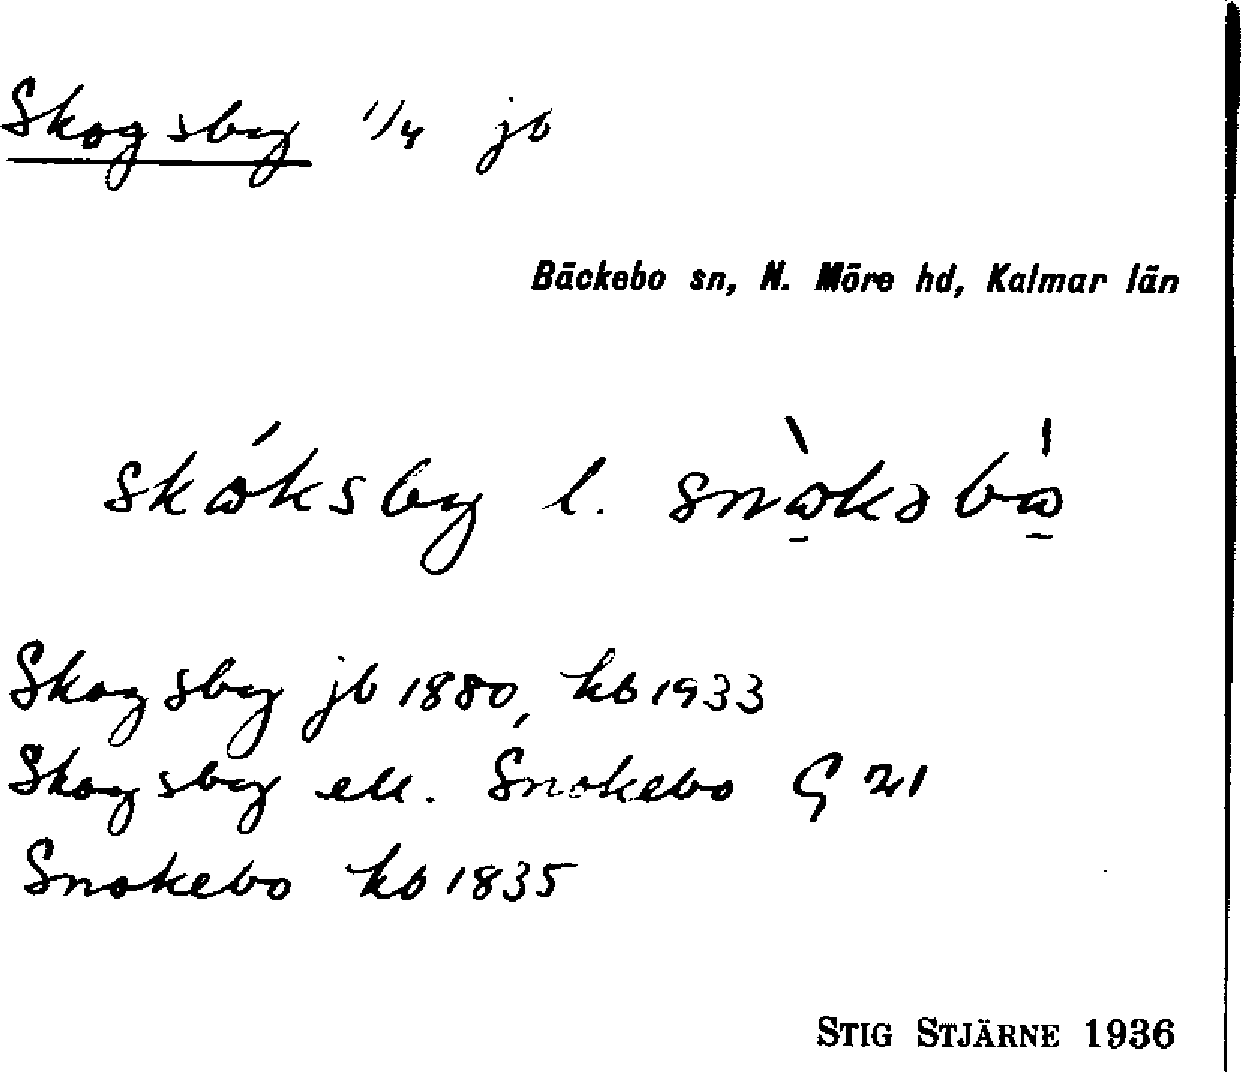 Skogsby 1/4 jb
Bäckebo sn, N. Möre hd, Kalmar län
skóksby l. snòksbò
Skogsby jb 1880, kb 1933
Skogsby ell. Snokebo G 21
Snokebo kb 1835
STIG STJÄRNE 1936